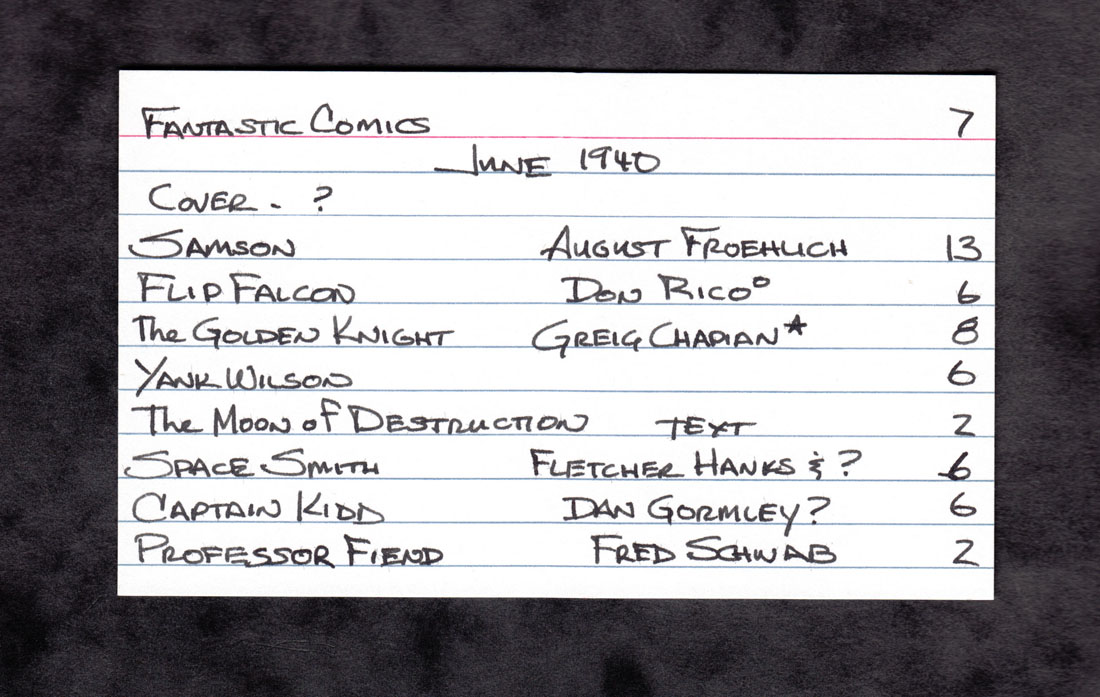 Fantastic Comics 7
June 1940
Cover - ?
Samson August Froehlich 13
Flip Falcon Don Rico° 6
The Golden Knight Greig Chapian* 8
Yank Wilson 6
The Moon of Destruction text 2
Space Smith Fletcher Hanks & ? 6
Captain Kidd Dan Gormley? 6
Professor Fiend Fred Schwab 2